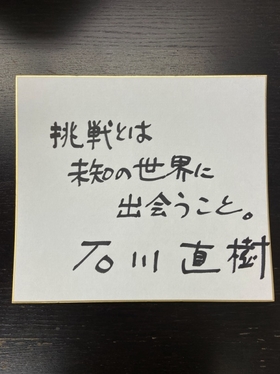 挑戦とは
未知の世界に
出会うこと。
石川直樹